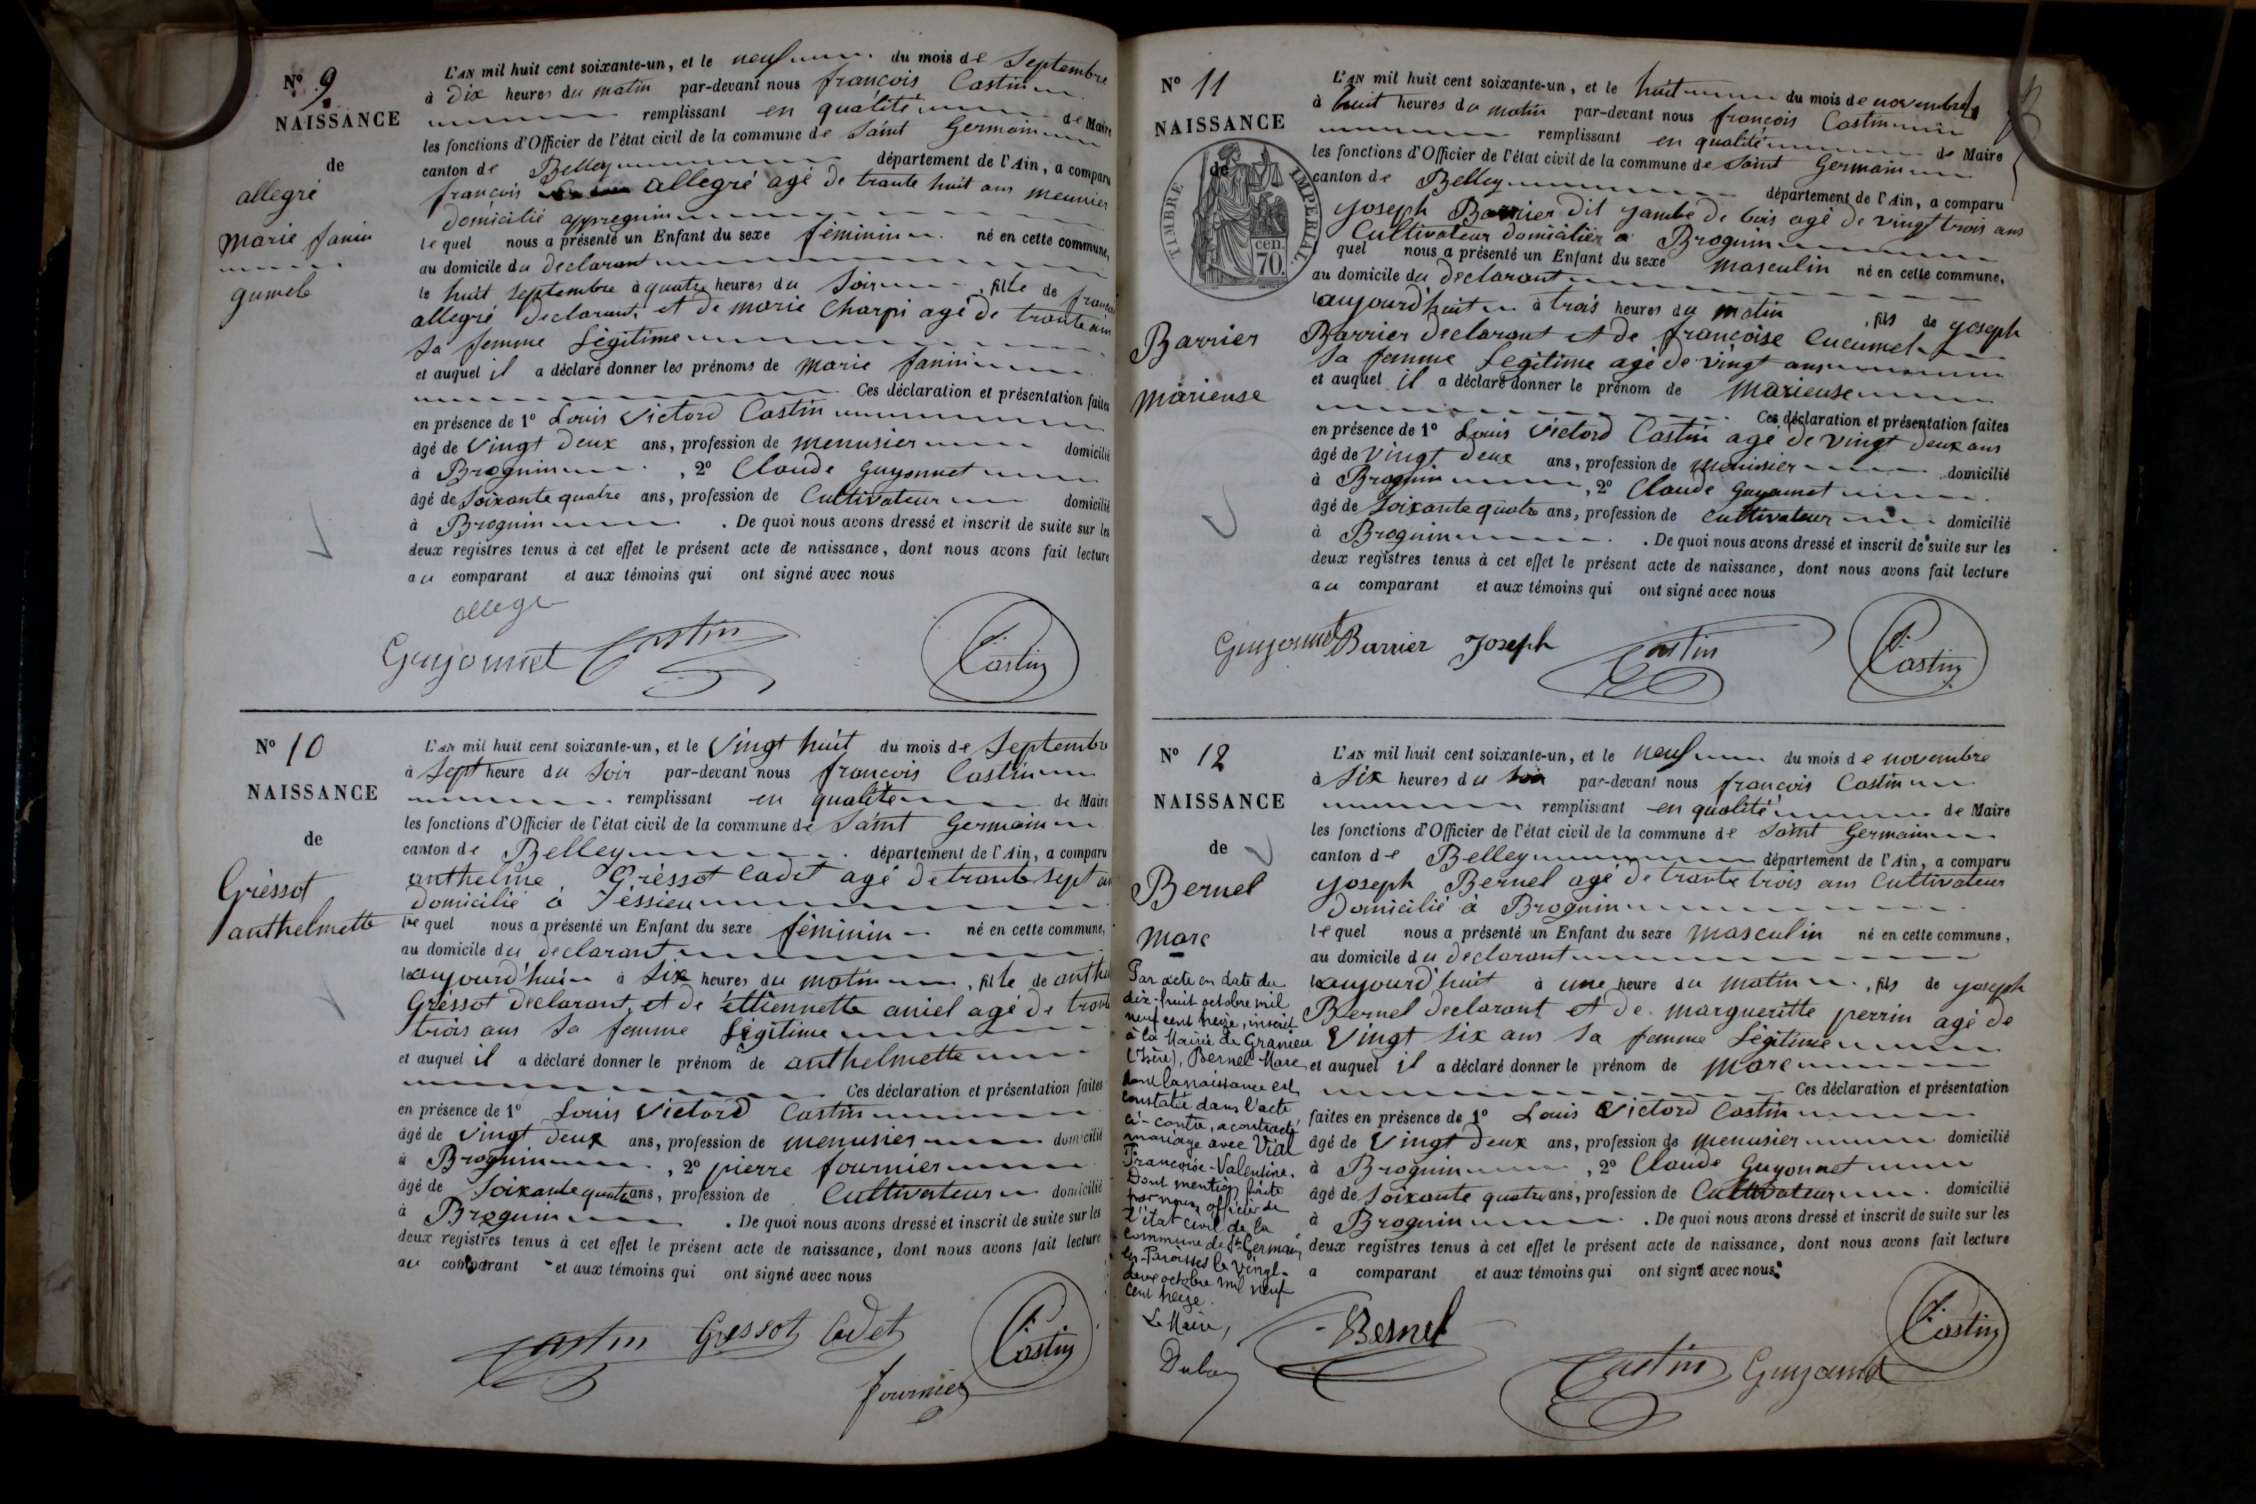 Nº 9
NAISSANCE
de
allegré
marie fanin
gumele
L'AN mil huit cent soixante-un, et le neuf du mois de Septembre
à dix heures du matin par-devant nous françois Castin
remplissant en qualité de Maire
les fonctions d'Officier de l'état civil de la commune de Saint Germain
canton de Belley département de l'Ain, a comparu
françois allegré agé de trante huit ans meunier
domicilié appregnin
le quel nous a présenté un Enfant du sexe féminin né en cette commune,
au domicile du declarant
le huit Septembre à quatre heures du Soir , fille de françois
allegré declarant, et de marie Charpi agé de trante ans
Sa femme Légitime
et auquel il a déclaré donner les prénoms de marie fanin
Ces déclaration et présentation faites
en présence de 1º Louis Victord Castin
âgé de Vingt deux ans, profession de menusier domicilié
à Brognin , 2º Claude Guyonnet
âgé de Soixante quatre ans, profession de Cultivateur domicilié
à Brognin . De quoi nous avons dressé et inscrit de suite sur les
deux registres tenus à cet effet le présent acte de naissance, dont nous avons fait lecture
au comparant et aux témoins qui ont signé avec nous
allegr
Guyonnet Castin Castin
Nº 10
NAISSANCE
de
Gréssot
anthelmette
L'AN mil huit cent soixante-un, et le Vingt huit du mois de Septembre
à Sept heure du Soir par-devant nous françois Castin
remplissant en qualité de Maire
les fonctions d'Officier de l'état civil de la commune de Saint Germain
canton de Belley département de l'Ain, a comparu
anthelme Gréssot Cadet agé de trante Sept ans
domicilié à Essieu
le quel nous a présenté un Enfant du sexe féminin né en cette commune,
au domicile du declarant
le aujourd'hui à Six heures du matin , fille de anthelme
Gréssot declarant, et de ettiennette aniel agé de trante
trois ans Sa femme Légitime
et auquel il a déclaré donner le prénom de anthelmette
Ces déclaration et présentation faites
en présence de 1º Louis Victord Castin
âgé de Vingt deux ans, profession de menusier domicilié
à Brognin , 2º pierre fournier
âgé de Soixante quatre ans, profession de Cultivateur domicilié
à Brognin . De quoi nous avons dressé et inscrit de suite sur les
deux registres tenus à cet effet le présent acte de naissance, dont nous avons fait lecture
au comparant et aux témoins qui ont signé avec nous
Castin Gressot Cadet Castin
fournier
Nº 11
NAISSANCE
de
TIMBRE IMPERIAL
70 cen.
Barrier
marieuse
L'AN mil huit cent soixante-un, et le huit du mois de novembre
à huit heures du matin par-devant nous françois Castin
remplissant en qualité de Maire
les fonctions d'Officier de l'état civil de la commune de Saint Germain
canton de Belley département de l'Ain, a comparu
yoseph Barrier dit yambe de bois agé de vingt trois ans
Cultivateur domicilier à Brognin
quel nous a présenté un Enfant du sexe masculin né en cette commune,
au domicile du declarant
le aujourd'huit à trois heures du matin , fils de yoseph
Barrier declarant et de françoise Cucumel
Sa femme Legitime agé de vingt ans
et auquel il a déclaré donner le prénom de marieuse
Ces déclaration et présentation faites
en présence de 1º Louis Victord Castin agé de vingt deux ans
âgé de Vingt deux ans, profession de menusier domicilié
à Brognin , 2º Claude Guyonnet
âgé de Soixante quatre ans, profession de Cultivateur domicilié
à Brognin . De quoi nous avons dressé et inscrit de suite sur les
deux registres tenus à cet effet le présent acte de naissance, dont nous avons fait lecture
au comparant et aux témoins qui ont signé avec nous
Guyonnet Barrier Joseph Castin Castin
Nº 12
NAISSANCE
de
Bernel
marc
Par acte en date du
dix-huit octobre mil
neuf cent treize, inscrit
à la Mairie de Granieu
(Isère), Bernel Marc
dont la naissance est
constatée dans l'acte
ci-contre, a contracté
mariage avec Vial
Françoise-Valentine.
Dont mention faite
par nous officier de
l'état civil de la
commune de St Germain
les-Paroisses le vingt-
deux octobre mil neuf
cent treize.
Le Maire,
L'AN mil huit cent soixante-un, et le neuf du mois de novembre
à Six heures du Soir par-devant nous françois Castin
remplissant en qualité de Maire
les fonctions d'Officier de l'état civil de la commune de Saint Germain
canton de Belley département de l'Ain, a comparu
yoseph Bernel agé de trante trois ans Cultivateur
domicilié à Brognin
le quel nous a présenté un Enfant du sexe masculin né en cette commune,
au domicile du declarant
le aujourd'huit à une heure du matin , fils de yoseph
Bernel declarant et de margueritte perrin agé de
Vingt Six ans Sa femme Légitime
et auquel il a déclaré donner le prénom de marc
Ces déclaration et présentation
faites en présence de 1º Louis Victord Castin
âgé de Vingt deux ans, profession de menusier domicilié
à Brognin , 2º Claude Guyonnet
âgé de Soixante quatre ans, profession de Cultivateur domicilié
à Brognin . De quoi nous avons dressé et inscrit de suite sur les
deux registres tenus à cet effet le présent acte de naissance, dont nous avons fait lecture
a comparant et aux témoins qui ont signé avec nous
Bernel Castin Guyonnet Castin